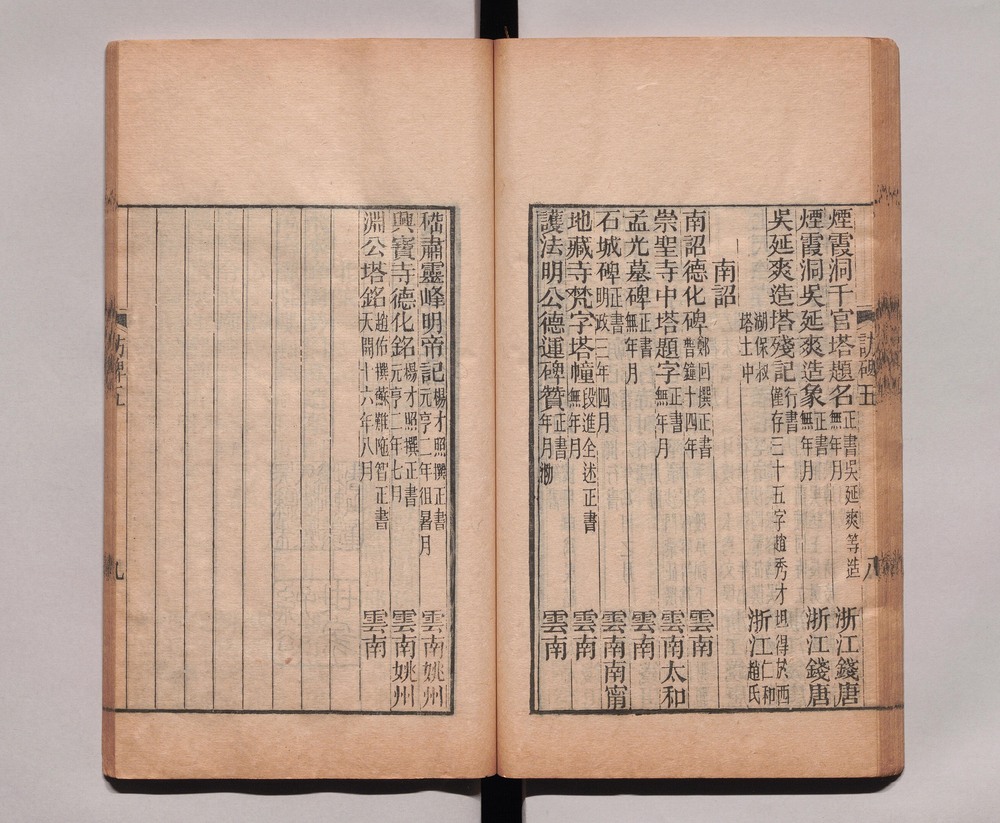 訪碑五
八
煙霞洞千官塔題名正書吳延爽等造無年月 浙江錢唐
煙霞洞吳延爽造象正書無年月 浙江錢唐
吳延爽造塔殘記行書僅存三十五字趙秀才坦得於西
湖保叔塔土中 浙江仁和趙氏
南詔
南詔德化碑鄭回撰正書普鐘十四年 雲南
崇聖寺中塔題字正書無年月 雲南太和
孟光墓碑正書無年月 雲南
石城碑正書明政三年四月 雲南南甯
地藏寺梵字塔幢段進全述正書無年月 雲南
護法明公德運碑贊正書年月泐 雲南
嵇肅靈峰明帝記楊才照撰正書元亨二年徂暑月 雲南姚州
興寶寺德化銘楊才照撰正書元亨二年七月 雲南姚州
淵公塔銘趙佑撰蘇難陁智正書天開十六年八月 雲南
訪碑五
九